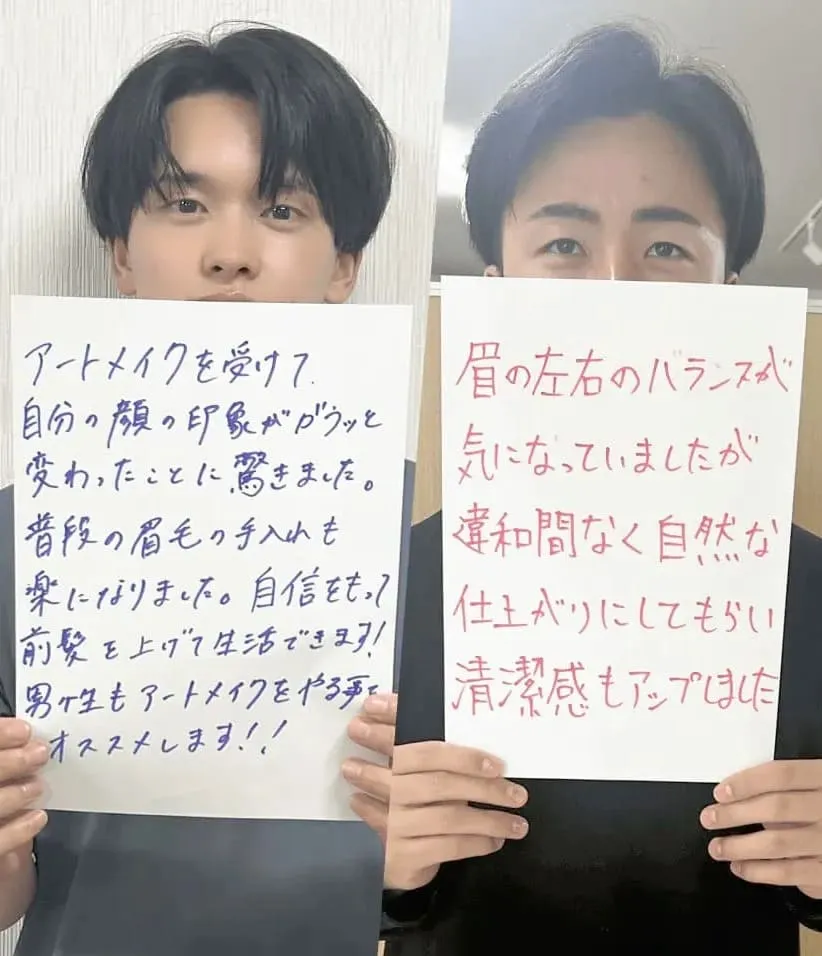 アートメイクを受けて
自分の顔の印象がガラッと
変わったことに驚きました。
普段の眉毛の手入れも
楽になりました。自信をもって
前髪を上げて生活できます!
男性もアートメイクをやる事を
オススメします!!
眉の左右のバランスが
気になっていましたが
違和間なく自然な
仕上がりにしてもらい
清潔感もアップしました